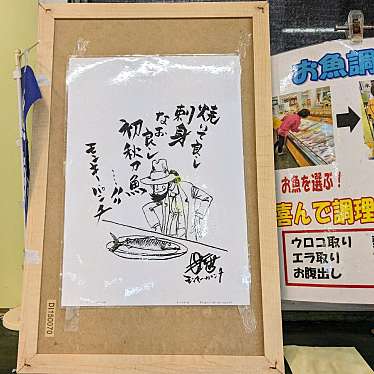 焼いて良し
刺身
なお良し
初秋刀魚
…!!
モンキー・パンチ
モンキー・パンチ
DI150070
お魚調
お魚を選ぶ!
喜んで調理
ウロコ取り
エラ取り
お腹出し